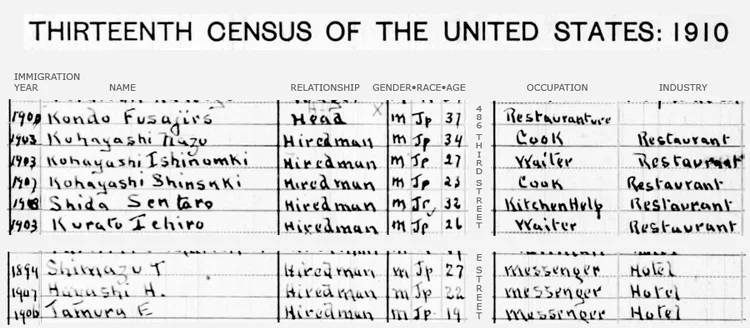 THIRTEENTH CENSUS OF THE UNITED STATES: 1910
IMMIGRATION
YEAR NAME RELATIONSHIP GENDER•RACE•AGE OCCUPATION INDUSTRY
Kondo Fusajiro Head m Jp 37 Restauranture
1903 Kohayashi Hired man m Jp 34 Cook Restaurant
1903 Kohayashi Ishinomki Hired man m Jp 27 Waiter Restaurant
1907 Kohayashi Shinski Hired man m Jp 23 Cook Restaurant
Shida Sentaro Hired man m Jp 32 Kitchen Help Restaurant
1903 Kurato Ichiro Hired man m Jp 26 Waiter Restaurant
486 THIRD STREET
1894 Shimazu T Hired man m Jp 27 messenger Hotel
1907 Hayashi H. Hired man m Jp 22 messenger Hotel
1906 Tamura E Hired man m Jp 19 messenger Hotel
E STREET